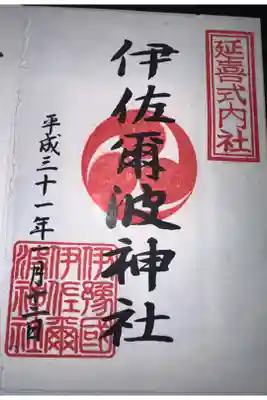 延喜式内社
伊佐爾波神社
平成三十一年一月十二日
伊豫國
伊佐爾
波神社